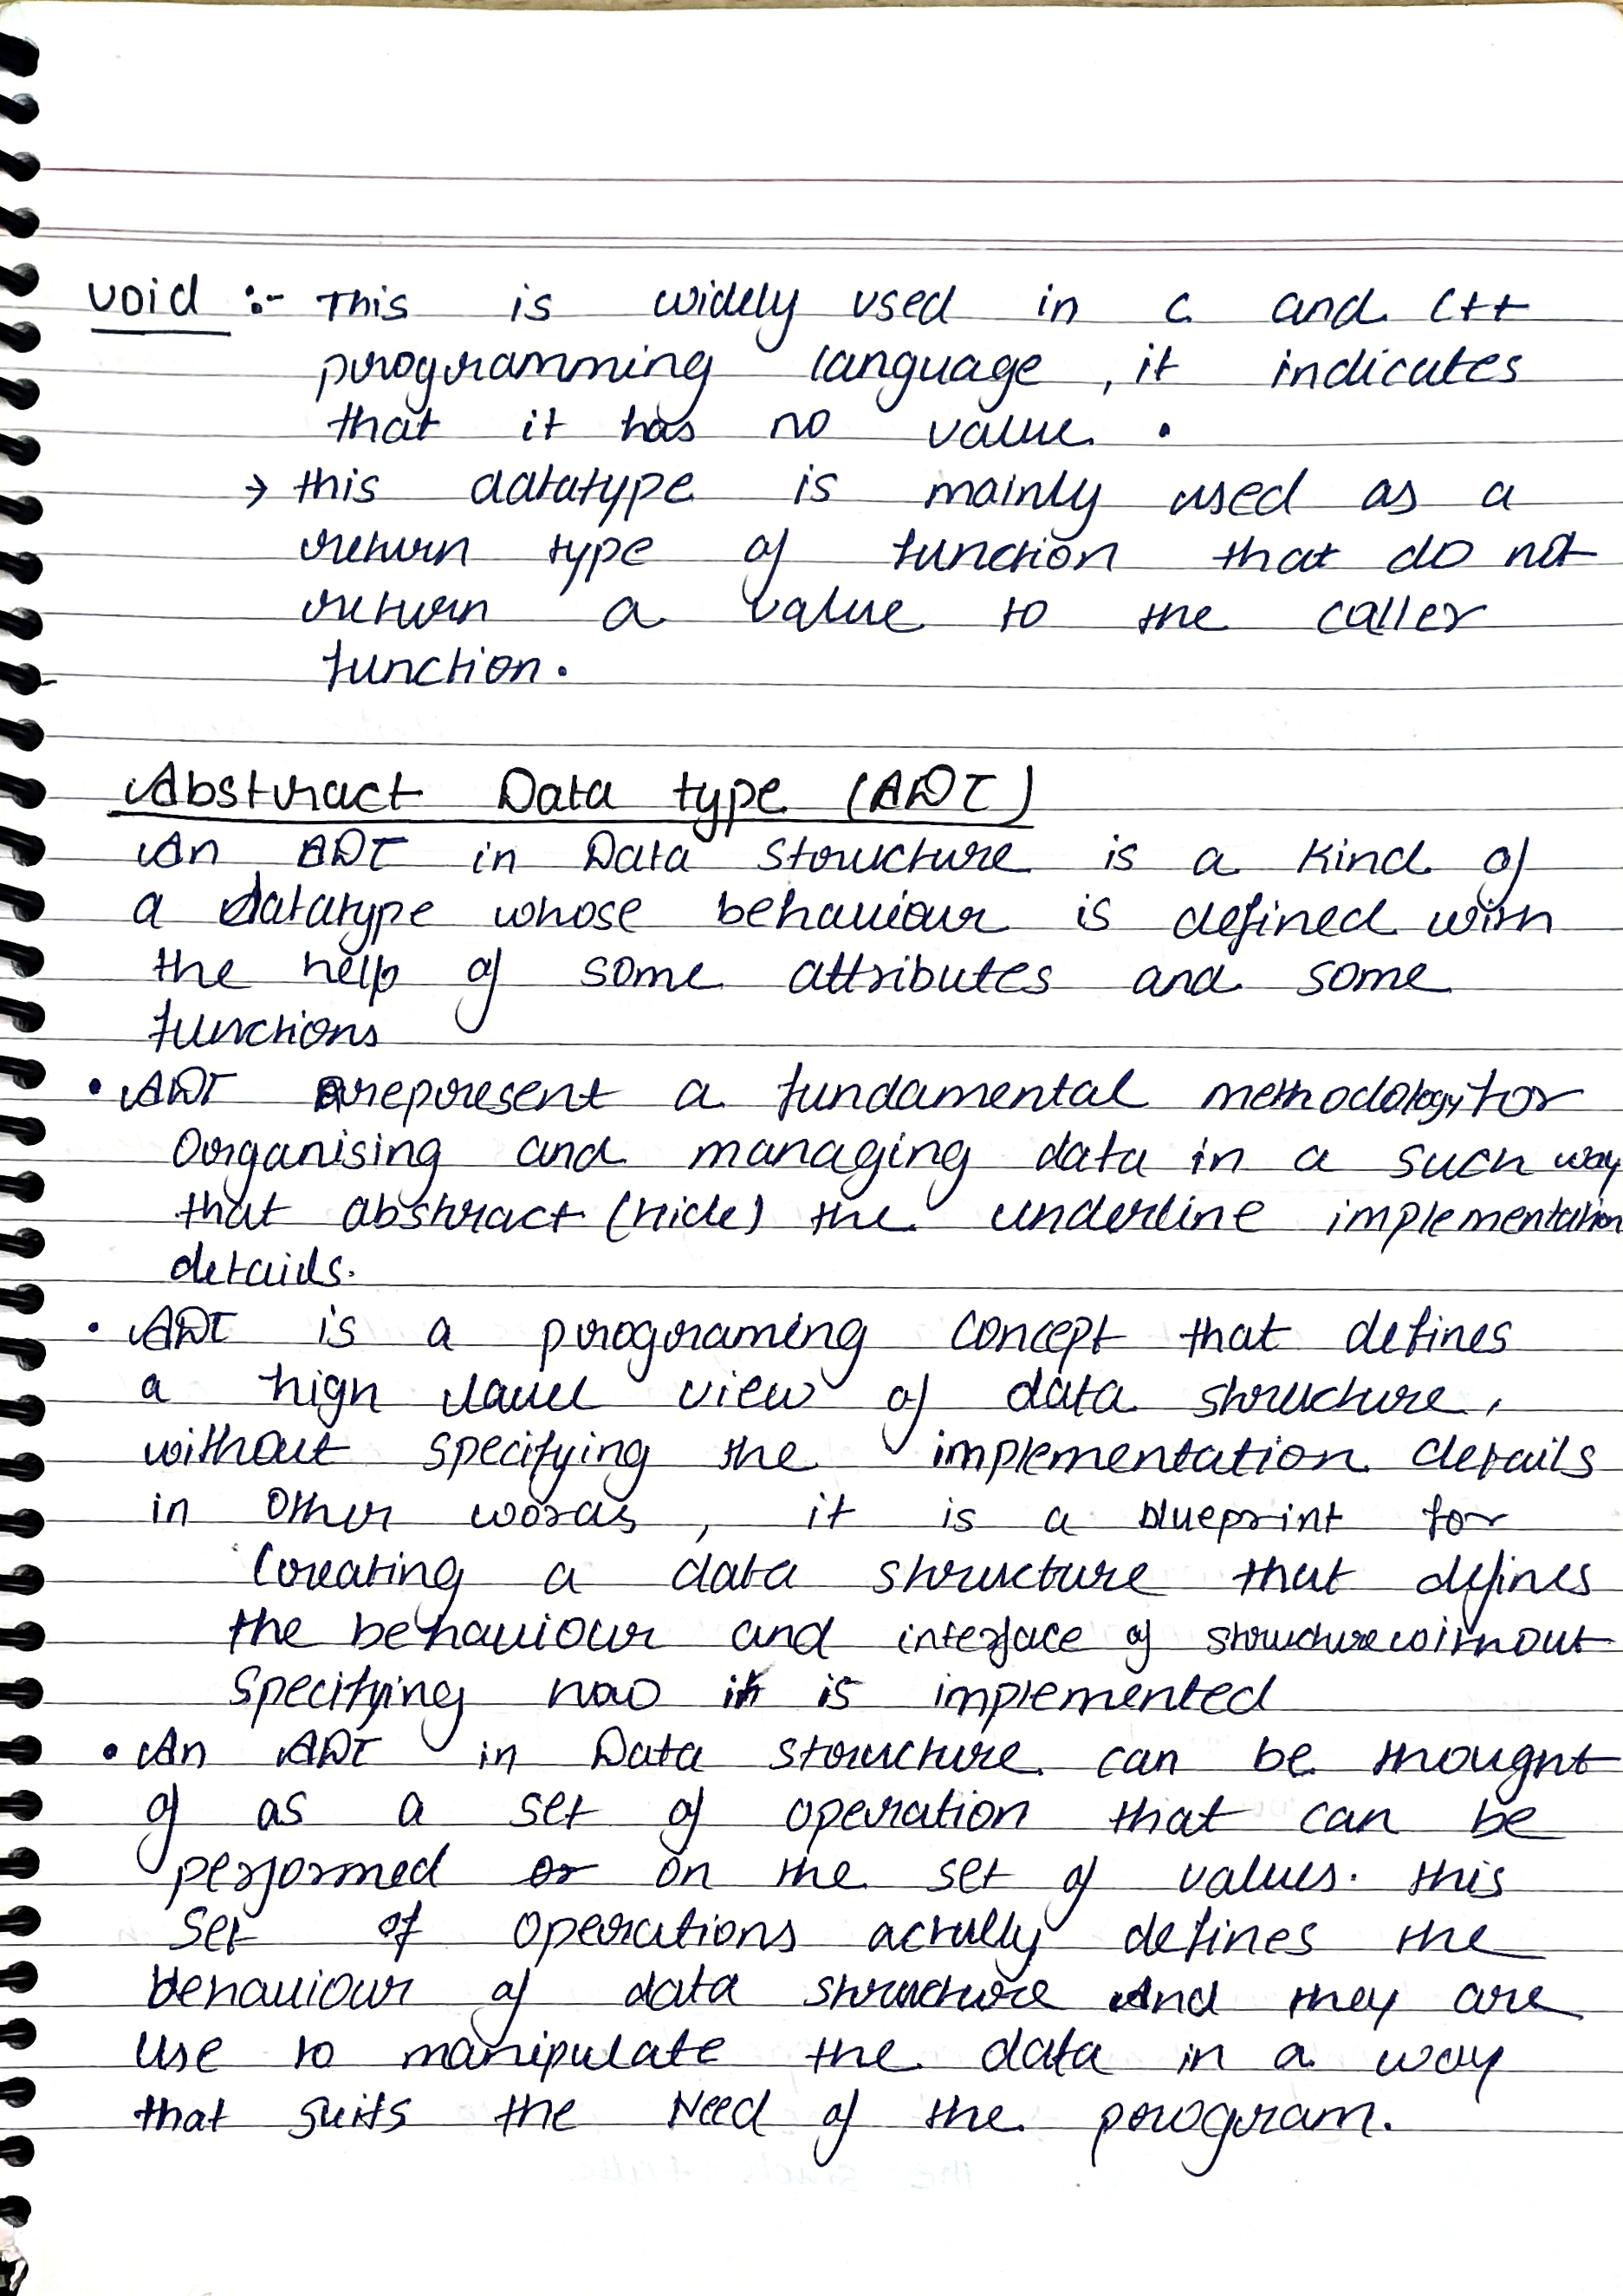 void :- This is widely used in C and C++
programming language, it indicates
that it has no value.
→ this datatype is mainly used as a
return type of function that do not
return a value to the caller
function.
Abstract Data type (ADT)
An ADT in Data structure is a kind of
a datatype whose behaviour is defined with
the help of some attributes and some
functions
• ADT represent a fundamental methodology for
organising and managing data in a such way
that abstract (hide) the underline implementation
details.
• ADT is a programing concept that defines
a high level view of data structure,
without specifying the implementation details
in other words, it is a blueprint for
Creating a data structure that defines
the behaviour and interface of structure without
specifying how it is implemented
• An ADT in Data structure can be thought
of as a set of operation that can be
performed on the set of values. this
set of operations actully defines the
behaviour of data structure And they are
use to manipulate the data in a way
that suits the Need of the program.